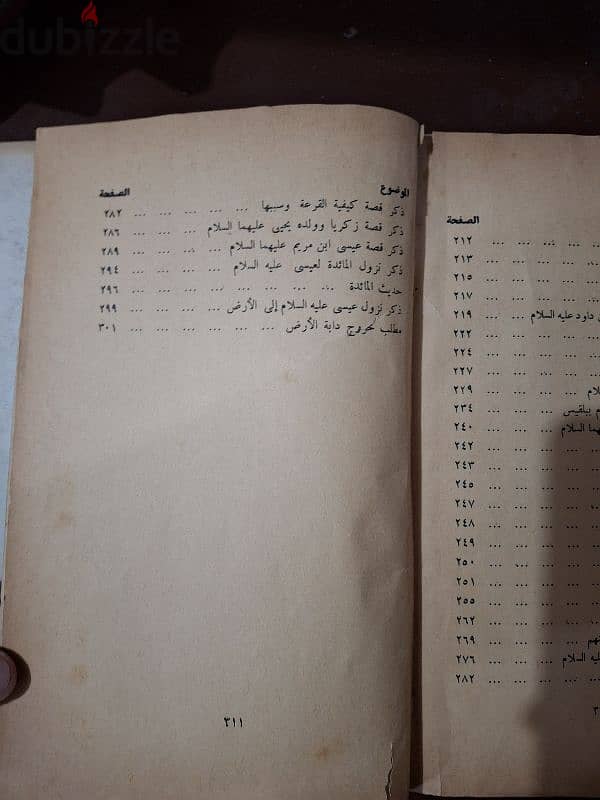 dubizzle
الصفحة
... ... ... ... ٢١٢
... ... ... ... ٢١٣
... ... ... ... ٢١٥
... ... ... ... ٢١٧
داود عليه السلام ... ... ... ٢١٩
... ... ... ... ٢٢٢
... ... ... ... ٢٢٤
... ... ... ... ٢٢٧
... ... ... ... ٢٢٩
بلقيس ... ... ... ٢٣٤
السلام ... ... ... ٢٤٠
... ... ... ... ٢٤٢
... ... ... ... ٢٤٣
... ... ... ... ٢٤٥
... ... ... ... ٢٤٧
... ... ... ... ٢٤٨
... ... ... ... ٢٤٩
... ... ... ... ٢٥٠
... ... ... ... ٢٥١
... ... ... ... ٢٥٥
... ... ... ... ٢٦٢
... ... ... ٢٦٩
السلام ... ... ... ٢٧٦
... ... ... ... ٢٨٢
الموضوع الصفحة
ذكر قصة كيفية القرعة وسببها ... ... ... ... ... ٢٨٢
ذكر قصة زكريا وولده يحيى عليهما السلام ... ... ... ... ٢٨٦
ذكر قصة عيسى ابن مريم عليهما السلام ... ... ... ... ٢٨٩
ذكر نزول المائدة لعيسى عليه السلام ... ... ... ... ٢٩٤
حديث المائدة ... ... ... ... ... ... ... ... ٢٩٦
ذكر نزول عيسى عليه السلام إلى الأرض ... ... ... ... ٢٩٩
مطلب لخروج دابة الأرض ... ... ... ... ... ... ٣٠١
٣١١